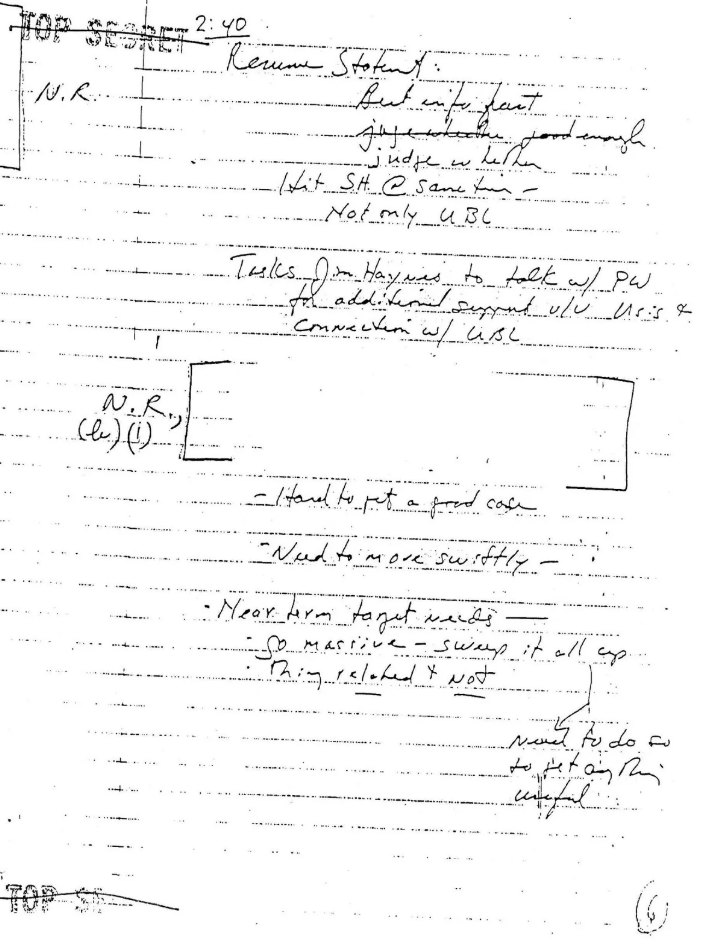 TOP SECRET 2:40
Resume Statemt:
N.R.
Best info fast
judge whether good enough
judge whether
Hit S.H. @ same time -
Not only UBL
Tasks Jim Haynes to talk w/ PW
for additional support v/v Usis &
connection w/ UBL
N.R.,
(b)(1)
- Hard to get a good case
- Need to move swiftly -
- Near term target needs —
- go massive - sweep it all up
- Thing related & not
need to do so
to get anything
useful
TOP SE
6